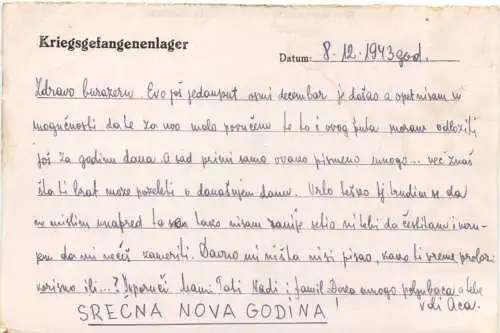 Kriegsgefangenenlager
Datum: 8-12-1943 god.
Zdravo burazeru. Evo još jedanput osmi decembar je došao a opet nisam u
mogućnosti da te za uvo malo povučem te to i ovog puta moram odložiti
još za godinu dana a sad primi samo ovako pismeno mnogo... već znaš
šta ti brat može poželeti o današnjem danu. Vrlo teško trudim se da
ne mislim unapred ta tako nisam ranije setio ni tebi da čestitam i
da mi nećeš zameriti. Davno mi ništa nisi pisao, kako ti vreme prolazi
korisno ili...? Isporuči Mami Tati Nadi i famil. mnogo poljubaca a tebe
voli Aca.
SREĆNA NOVA GODINA!